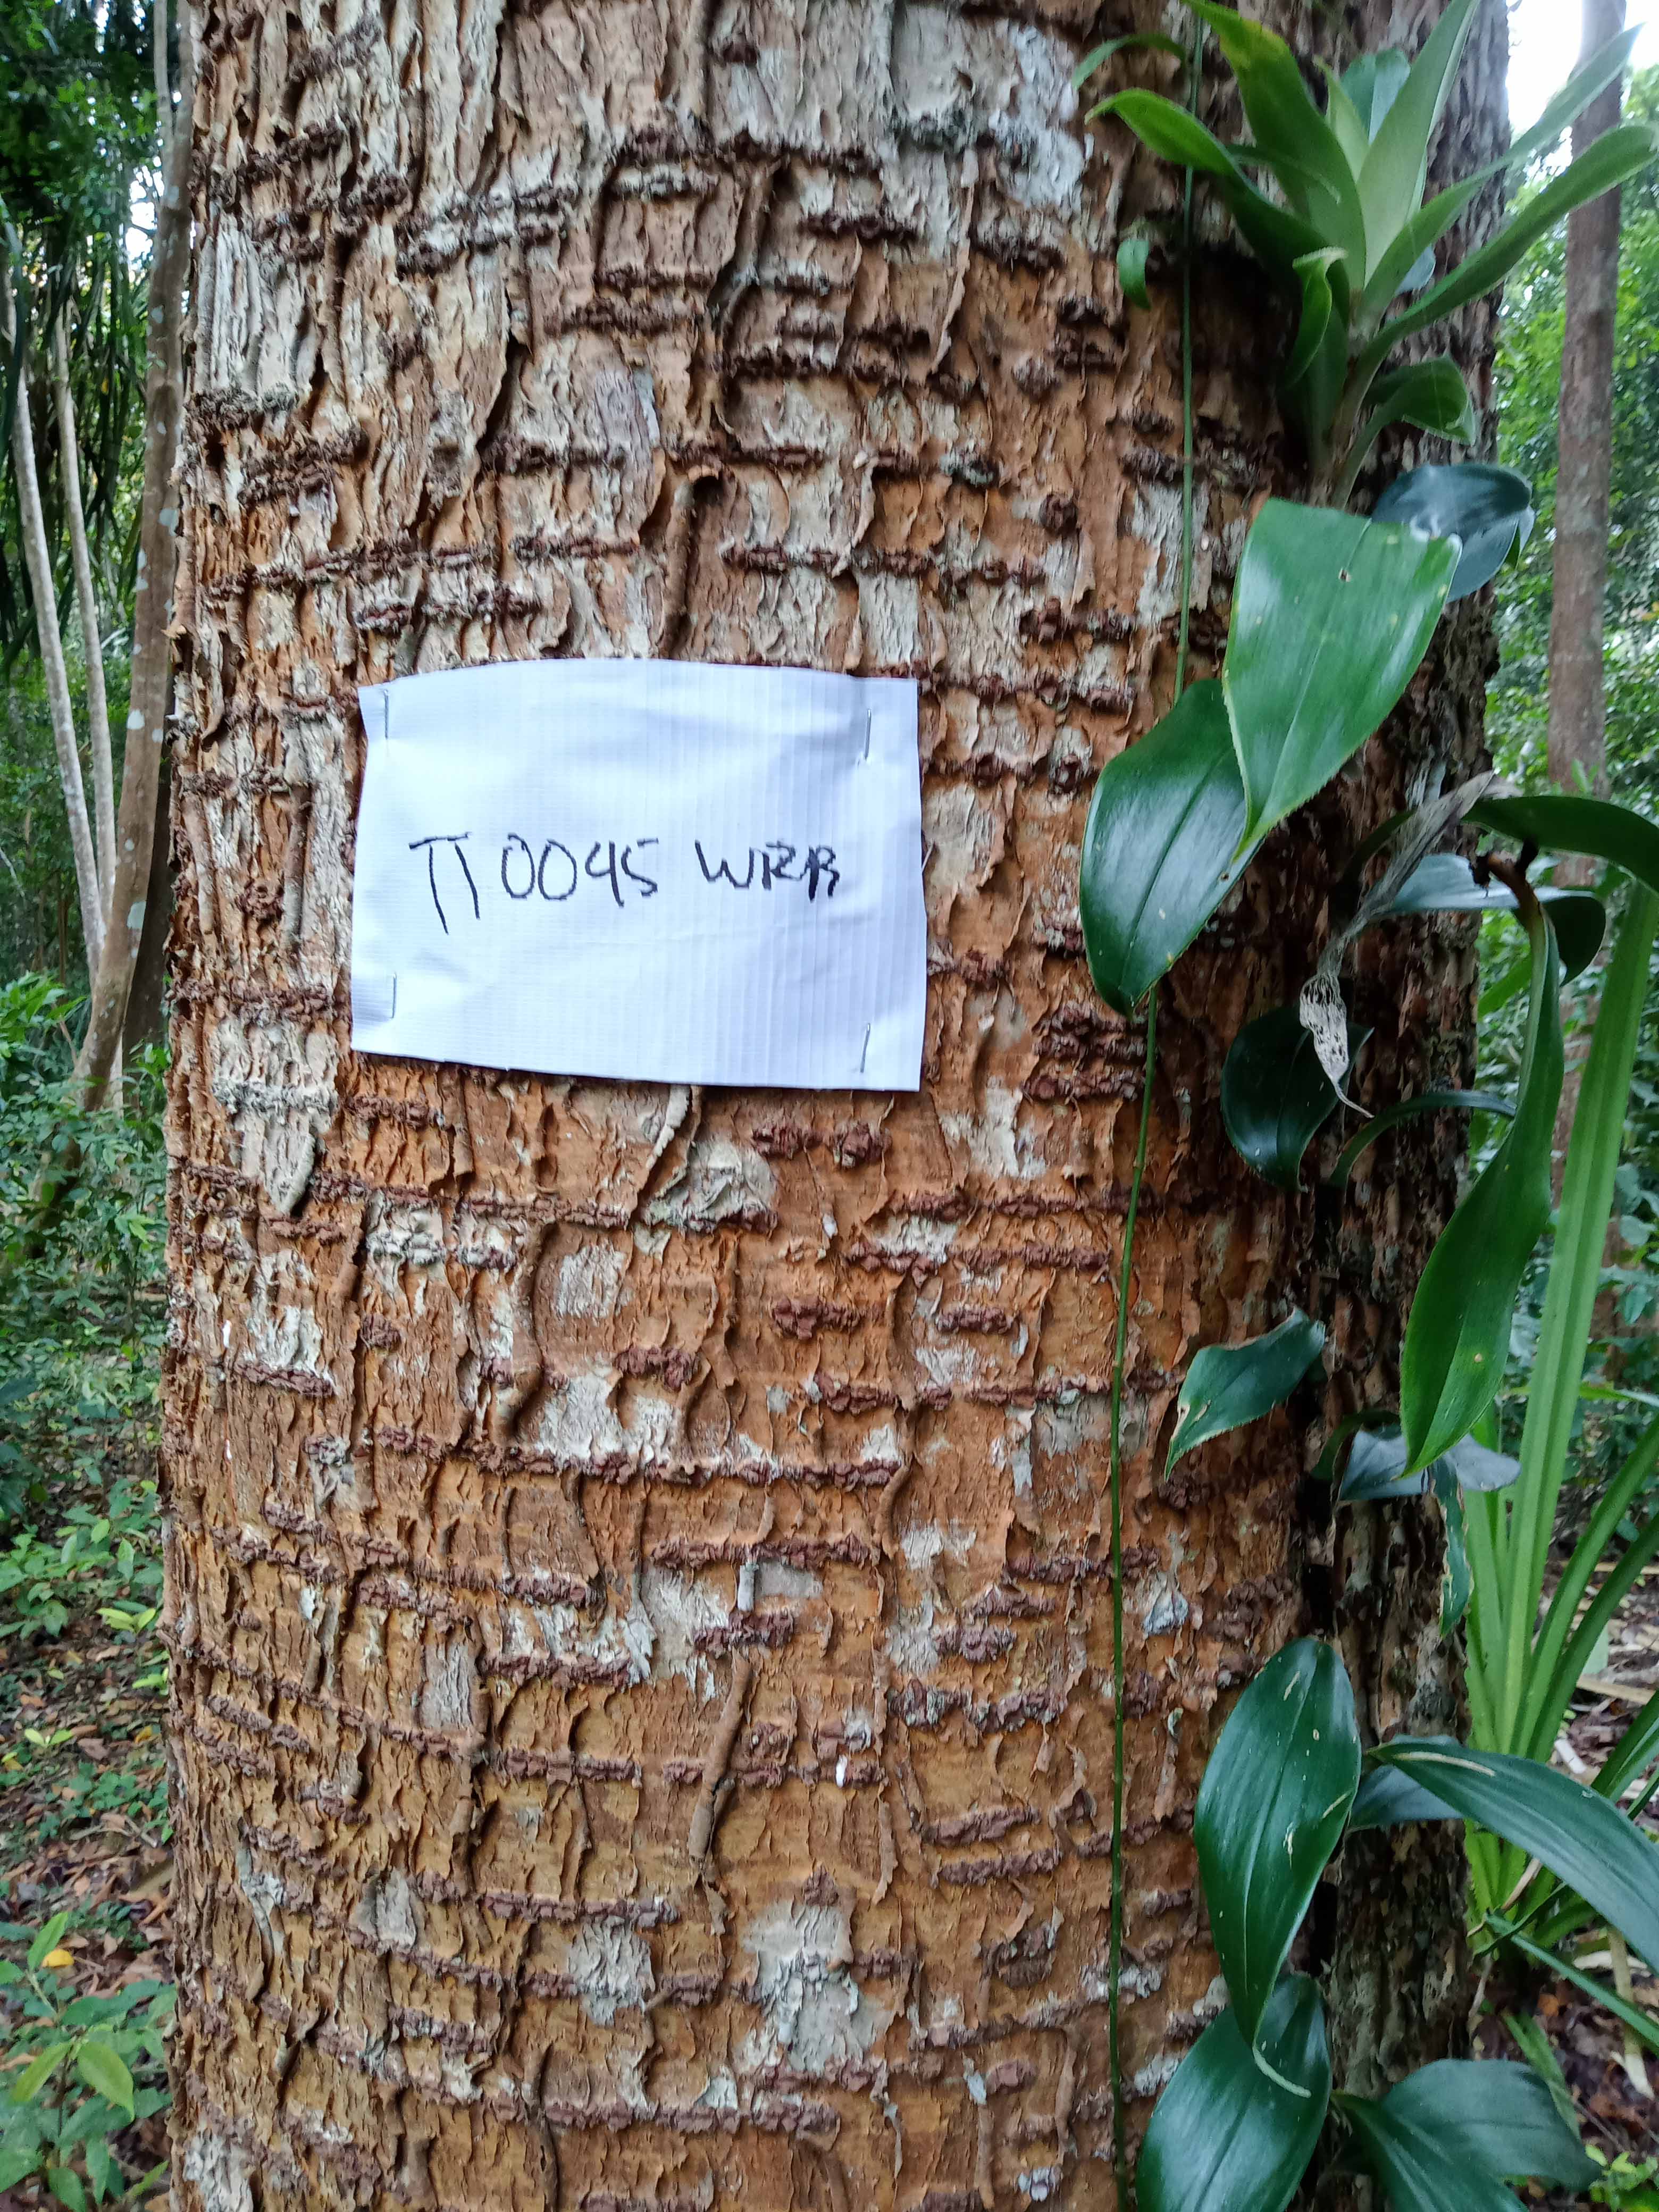 TI 0045 WRR